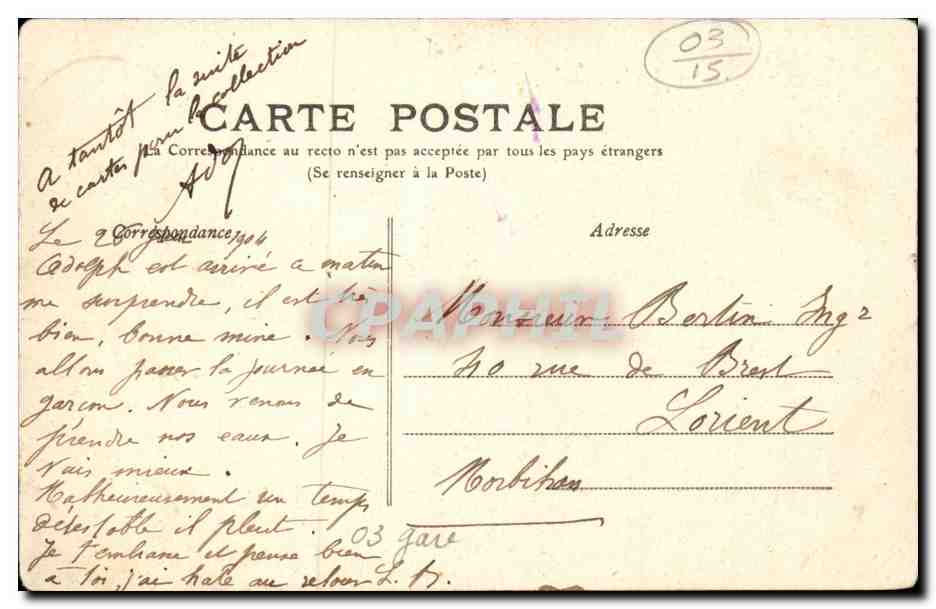 03
15
A tantôt la suite
de cartes pour la collection
Adolf
CARTE POSTALE
La Correspondance au recto n'est pas acceptée par tous les pays étrangers
(Se renseigner à la Poste)
Correspondance
Adresse
Le 26 1904
Adolph est arrivé ce matin
me surprendre, il est très
bien, bonne mine. Nous
allons passer la journée en
garçon. Nous venons de
prendre nos eaux. Je
vais mieux.
Malheureusement un temps
détestable il pleut.
Je t'embrasse et pense bien
à toi, j'ai hate au retour L. B.
Monsieur Bertin Ingr
40 rue de Brest
Lorient
Morbihan
03 gare
CPAPHIL